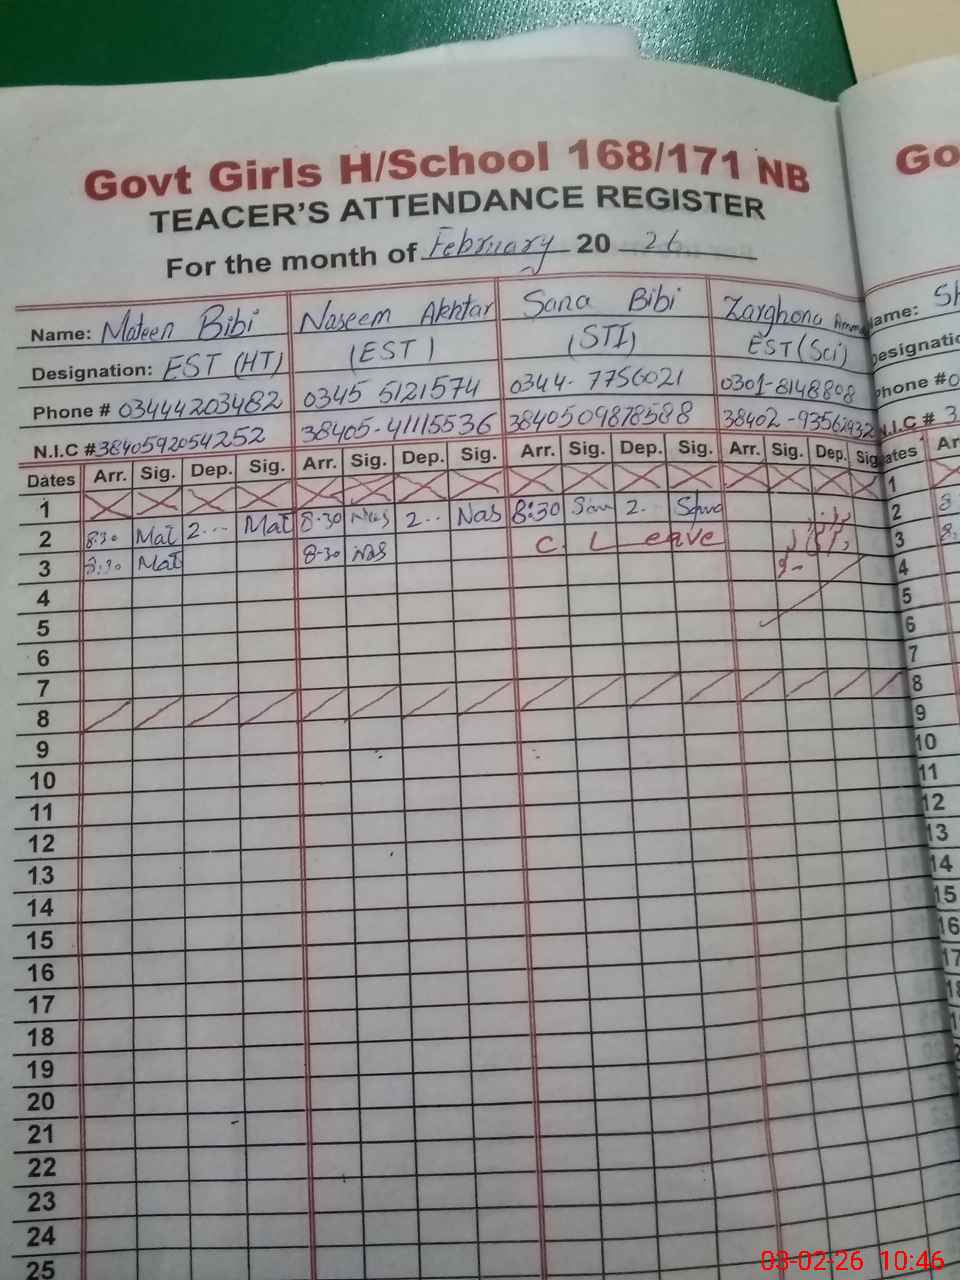 Govt Girls H/School 168/171 NB
TEACER'S ATTENDANCE REGISTER
For the month of February 2026
Name: Mateen Bibi Naseem Akhtar Sana Bibi Zarghona
Designation: EST (HT) (EST) (STI) EST (Sci)
Phone # 03444203482 0345 5121574 0344-7756021 0301-8148808
N.I.C # 3840592054252 38405-41115536 3840509878588
Dates Arr. Sig. Dep. Sig. Arr. Sig. Dep. Sig. Arr. Sig. Dep. Sig. Arr. Sig. Dep. Sig
1
2 8:30 Mat 2 Mat 8-30 Nas 2 Nas 8:30 2
3 8:30 Mat 8-30 Nas C. Leave
4
5
6
7
8
9
10
11
12
13
14
15
16
17
18
19
20
21
22
23
24
25
Go
ame: Sh
esignatio
Phone # 0
N.I.C # 3
ates Ar
1
2 8
3 8
4
5
6
7
8
9
10
11
12
13
14
15
16
17
03-02-26 10:46